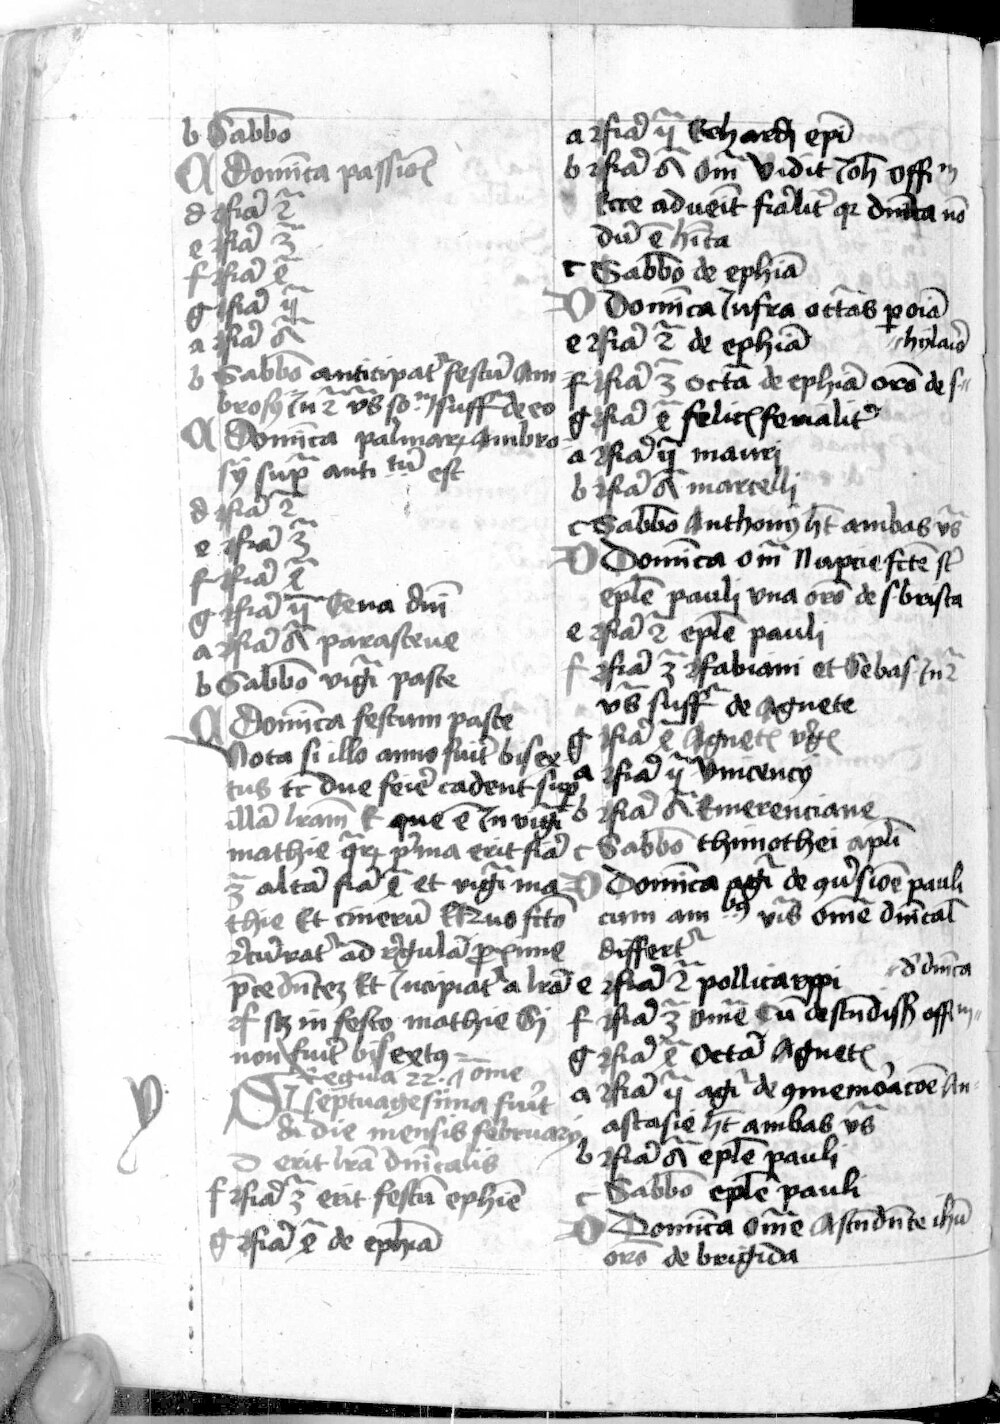 b Sabbo
A Domica passion
d feria 2
e feria 3
f feria 4
g feria v
a feria 6
b Sabbo anticipatr festu Am
brosij in 2 vs so suffr de eo
A Domica palmar Ambro
sij supra anti tu est
d feria 2
e feria 3
f feria 4
g feria v Cena dni
a feria 6 parasceue
b Sabbo vigi pasce
A Domica festum pasce
Nota si illo anno fuit bisex
tus tc due ferie cadent sup
illa lram f que e in vigi
mathie prima erit feria
3 altera feria 4 et vigi ma
thie Et cineru
recurratr ad regula proxime
pcedentez Et incipiatr a lra
f sz in festo mathie Si
non fuit bisextus
Regula 22 a ome
Si septuagesima fuit
die mensis february
D erit lra dnicalis
f feria 3 erit festu ephie
g feria 4 de ephia
a feria v Erhardi epi
b feria 6 Om Vidit Joh offm
Ecce adueit ferialit qr dnica no
du e hita
c Sabbo de ephia
D Domica infra octas p oia
e feria 2 de ephia hylarij
f feria 3 octa de ephia oro de s
g feria 4 felicis ferialit
a feria v mauri
b feria 6 marcelli
c Sabbo Anthonij ht ambas vs
D Domica om Nupcie fcte st
eple pauli vna oro de s brisca
e feria 2 eple pauli
f feria 3 fabiani et Sebas in 2
vs suffr de Agnete
g feria 4 Agnetis vgis
a feria v Vincencij
b feria 6 Emerenciane
c Sabbo thimothei apli
D Domica agi de quersioe pauli
cum ambus vris ome dnical
differtr
e feria 2 pollicarppi de dnica
f feria 3 ome Cu descendiss offm
g feria 4 Octa Agnetis
a feria v agi de comemoracoe An
astasie ht ambas vs
b feria 6 eple pauli
c Sabbo eple pauli
D Domica ome Ascendente ihu
oro de brigida